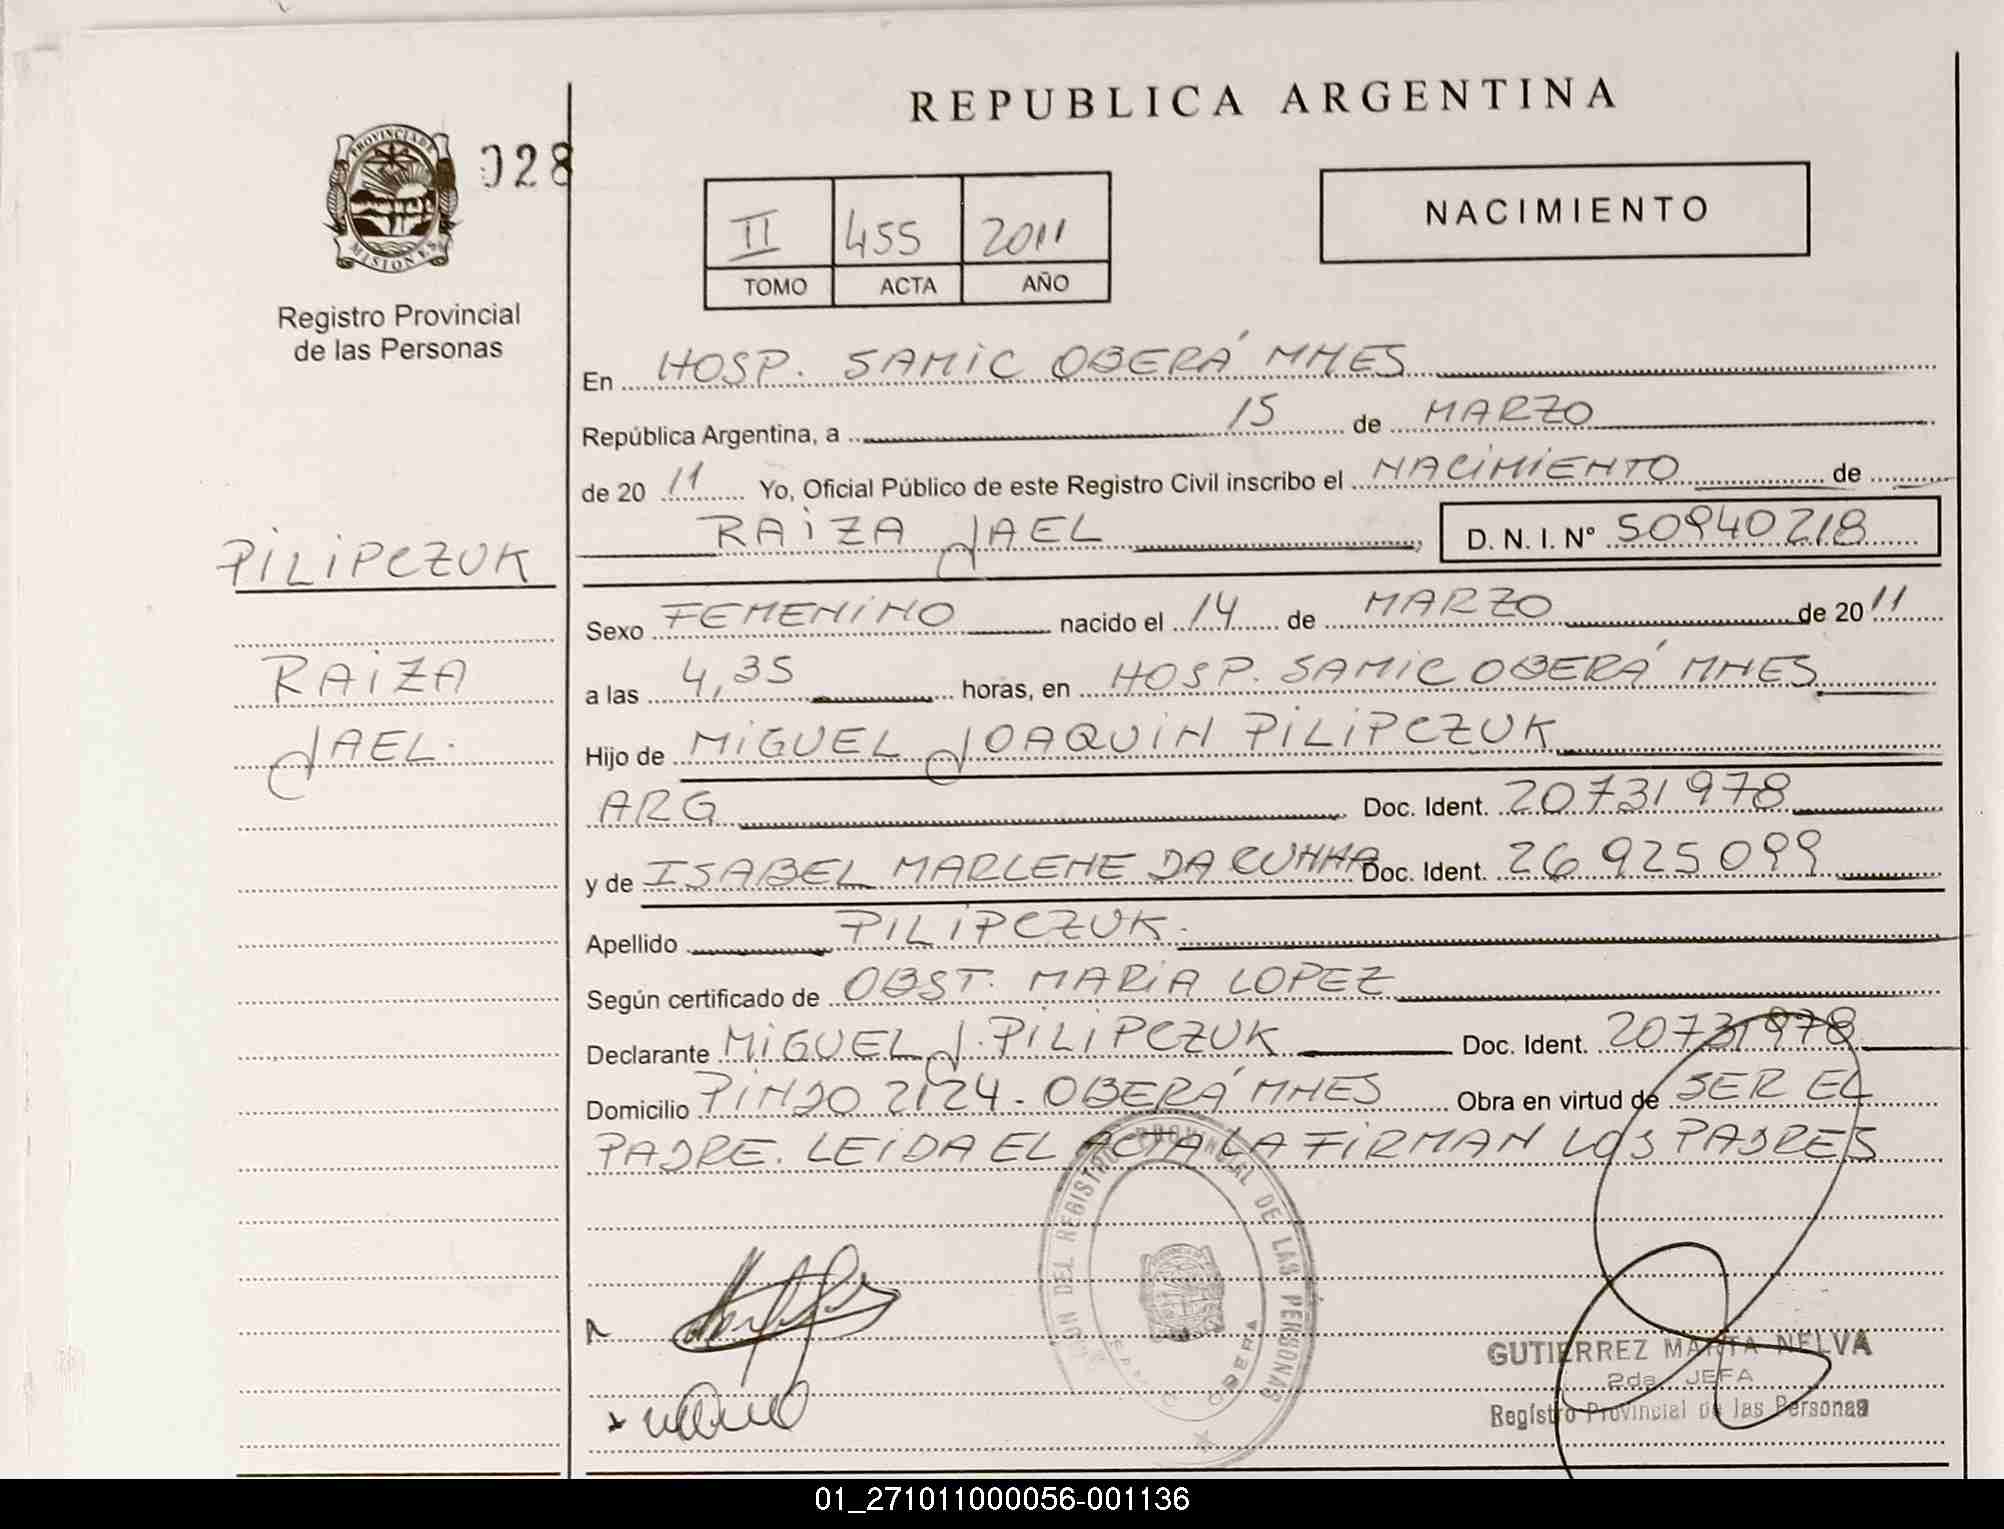 REPUBLICA ARGENTINA
PROVINCIA DE
MISIONES
028
Registro Provincial
de las Personas
II 455 2011
TOMO ACTA AÑO
NACIMIENTO
En HOSP. SAMIC OBERÁ MNES
República Argentina, a 15 de MARZO
de 20 11 Yo, Oficial Público de este Registro Civil inscribo el NACIMIENTO de
RAIZA JAEL, D. N. I. Nº 50940218
PILIPCZUK
RAIZA
JAEL.
Sexo FEMENINO nacido el 14 de MARZO de 20 11
a las 4,35 horas, en HOSP. SAMIC OBERÁ MNES
Hijo de MIGUEL JOAQUIN PILIPCZUK
ARG Doc. Ident. 20731978
y de ISABEL MARLENE DA CUNHA Doc. Ident. 26925099
Apellido PILIPCZUK.
Según certificado de OBST. MARIA LOPEZ
Declarante MIGUEL J. PILIPCZUK Doc. Ident. 20731978
Domicilio PINDO 2124 - OBERÁ MNES Obra en virtud de SER EL
PADRE. LEIDA EL ACTA LA FIRMAN LOS PADRES
DEL REGISTRO PROVINCIAL DE LAS PERSONAS
OBERA
GUTIERREZ MARTA NELVA
2da JEFA
Registro Provincial de las Personas
01_271011000056-001136